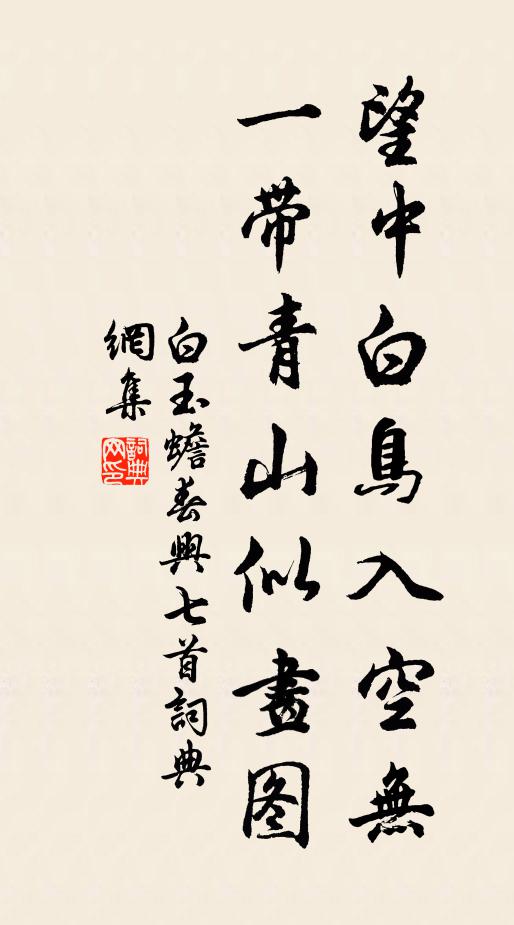 望中白鳥入空無
一帶青山似畫图
白玉蟾春興七首詞典
網集
詞典
网印